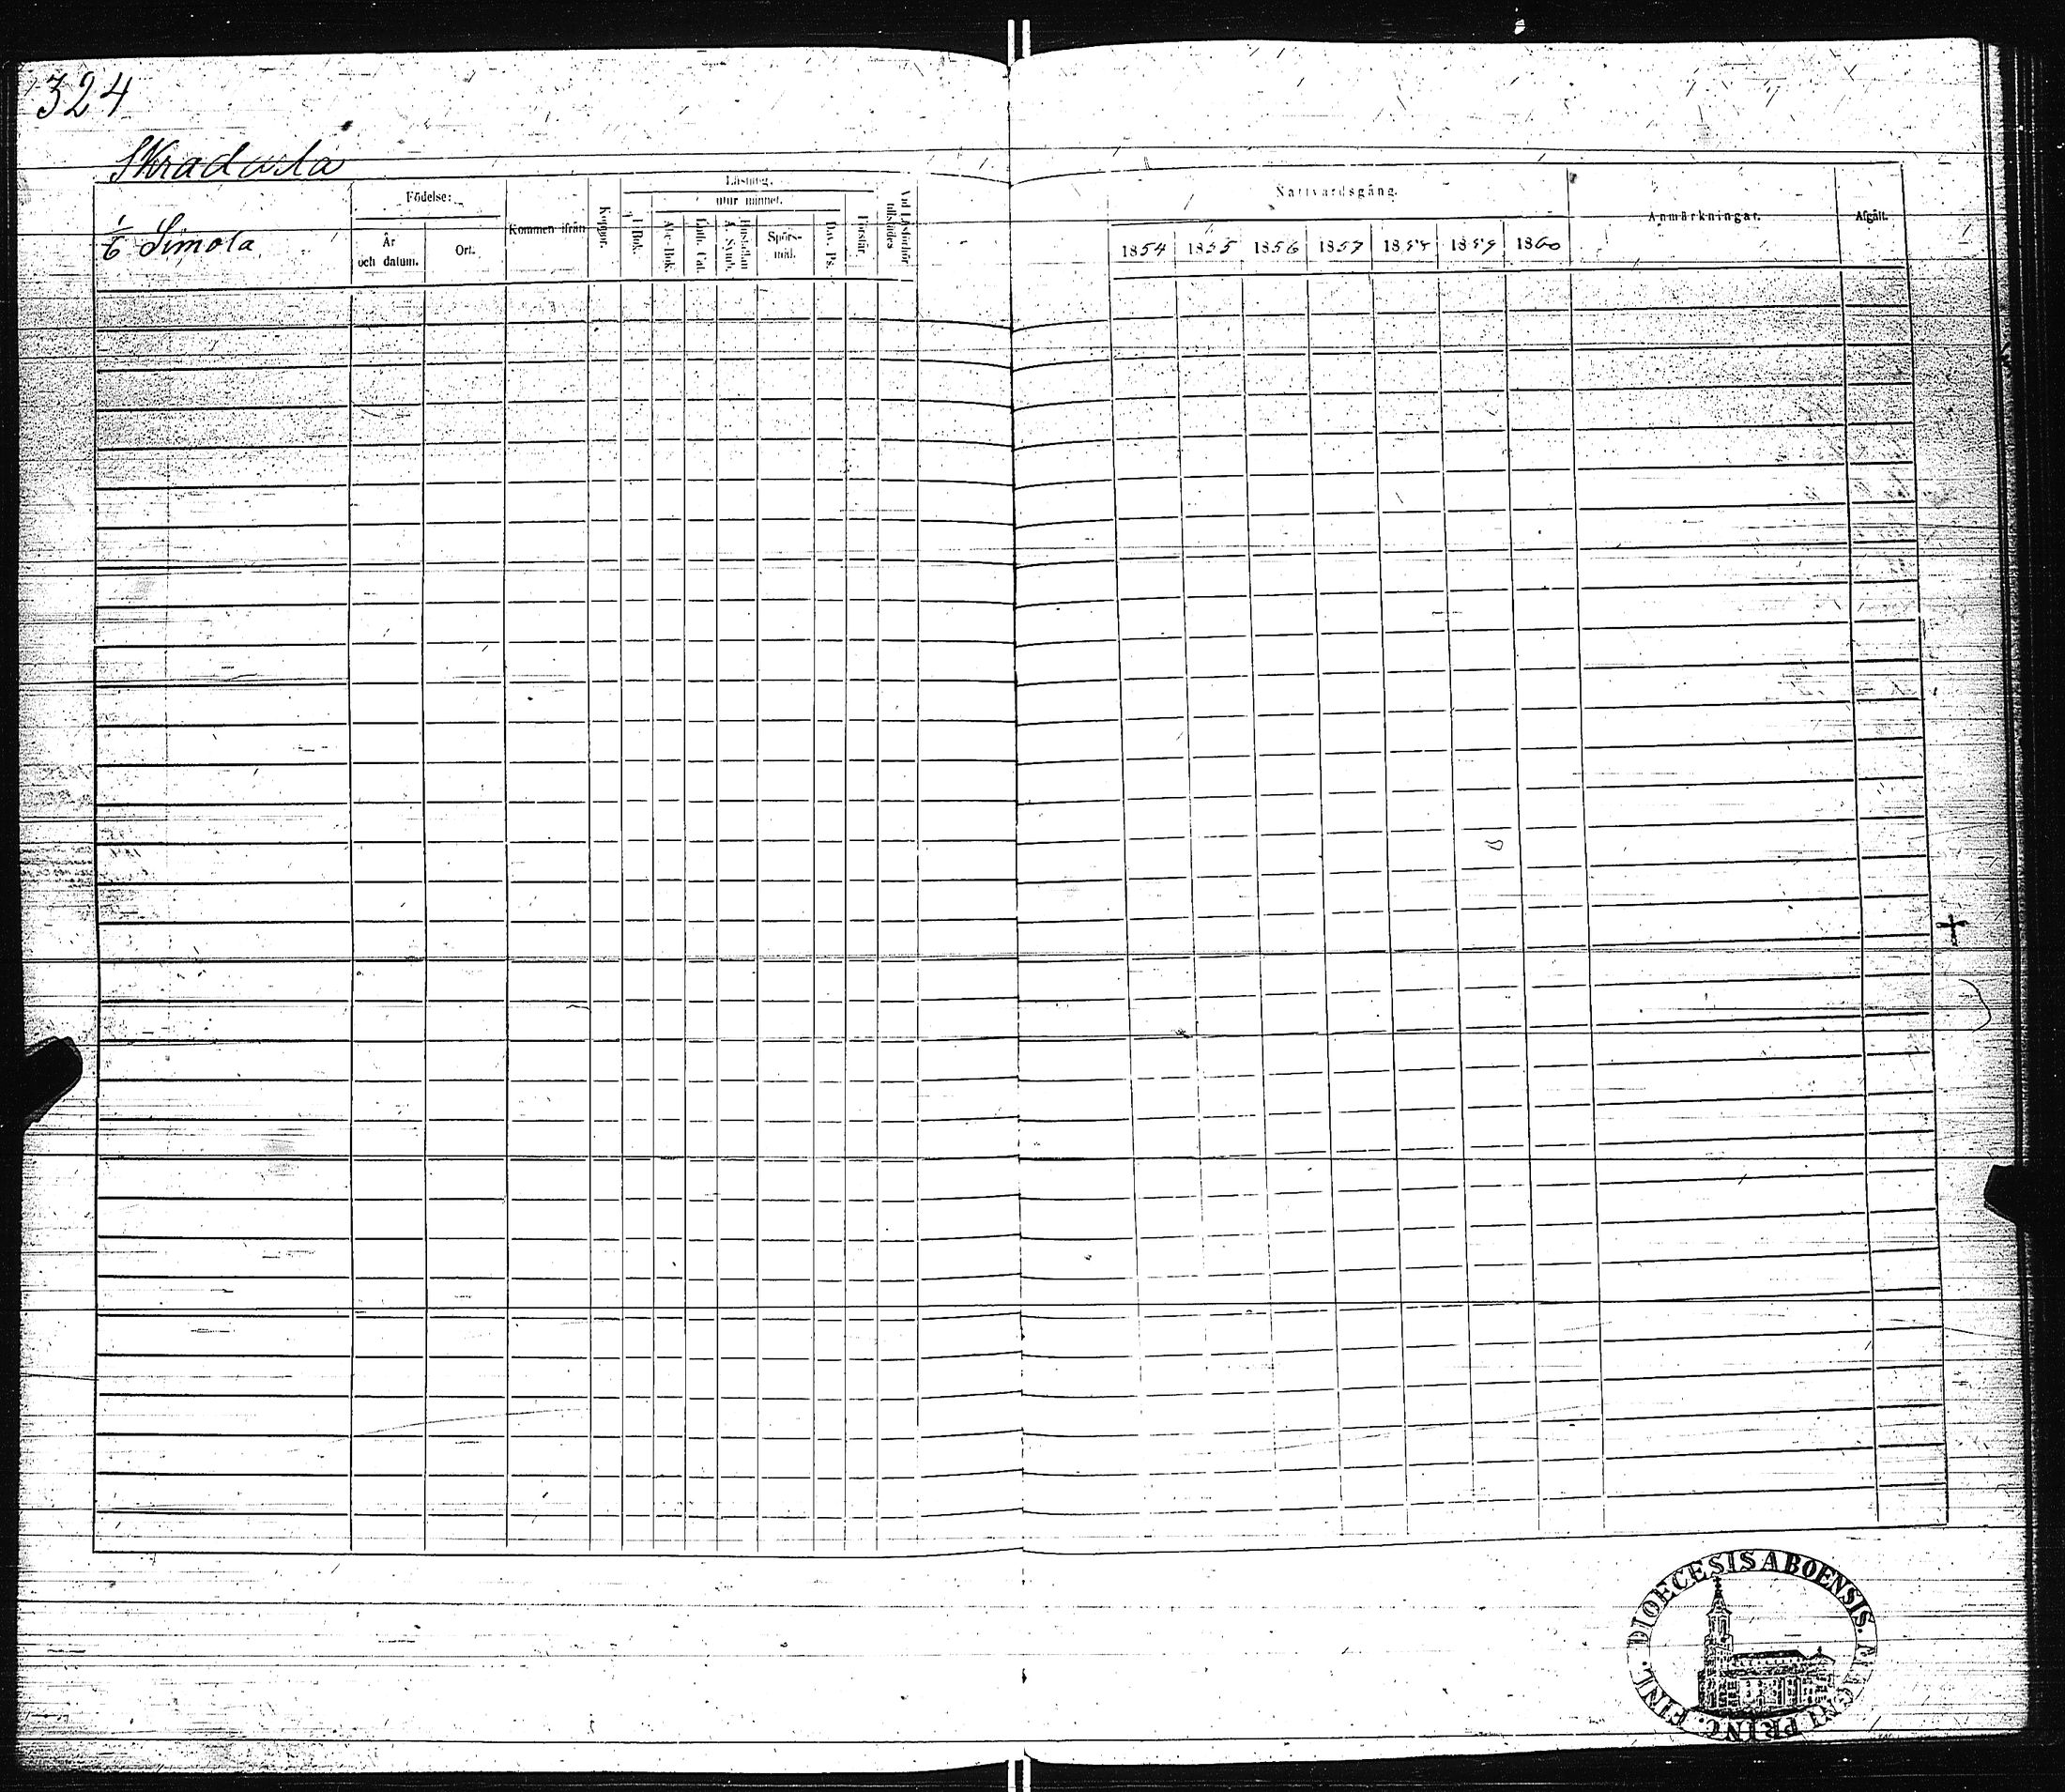 324
Skradusla
1/6 Simola
Födelse:
År och datum.
Ort.
Kommen ifrån
Koppor.
Läsning.
I Bok.
utur minnet.
Abc-Bok.
Luth. Cat.
Hustaflan A. Symb.
Spörs-mål.
Dav. Ps.
Förstår.
Vid Läsförhör tillstädes
Nattvardsgång.
1854 1855 1856 1857 1858 1859 1860
Anmärkningar.
Afgått.
DIOECESIS ABOENSIS. MAGNI PRINC. FINL.